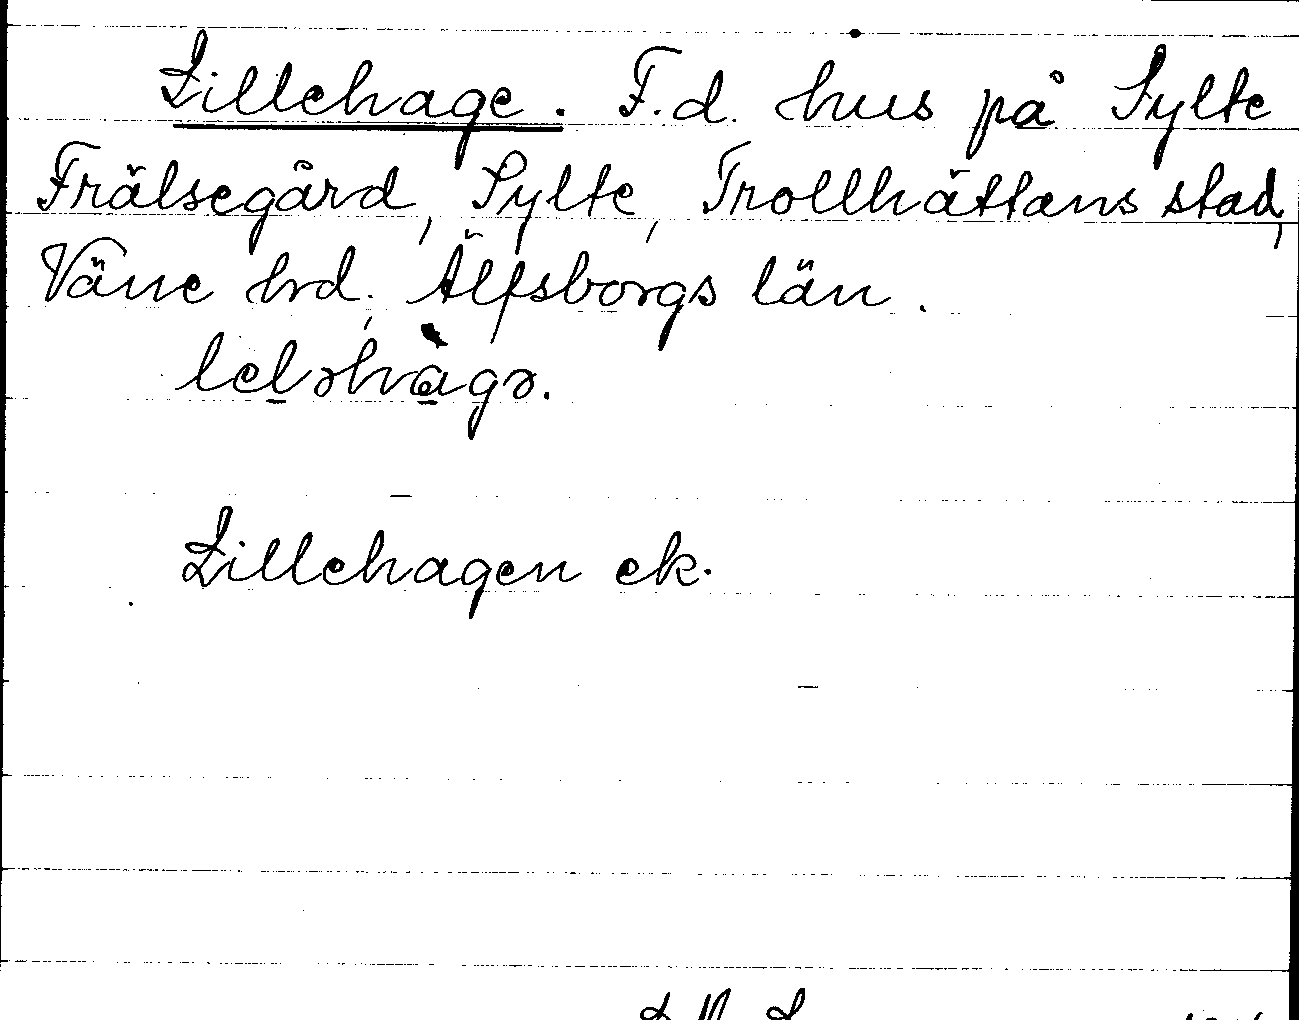 Lillehage. F.d. hus på Sylte
Frälsegård, Sylte, Trollhättans stad,
Väne hrd, Älfsborgs län.
lelǝhàgǝ.
Lillehagen ek.